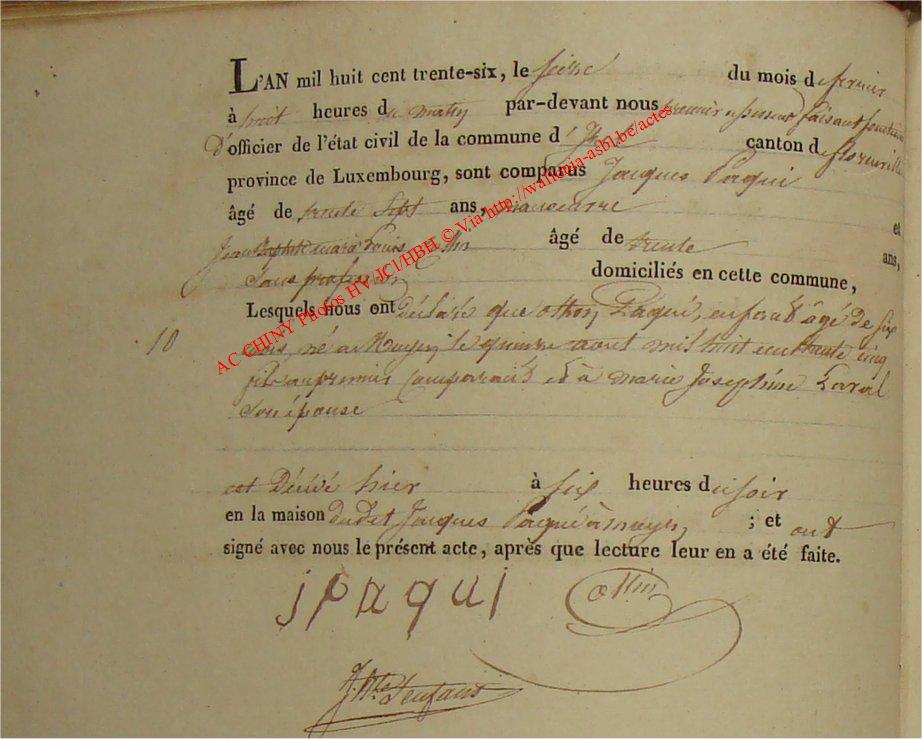 L'AN mil huit cent trente-six, le seize du mois de fevrier
à huit heures du matin par-devant nous premier assesseur faisant fonction
D'officier de l'état civil de la commune d' canton de florenville
province de Luxembourg, sont comparus Jacques Paqui
âgé de trente Sept ans, et
Jean Baptiste marie Louis ottin âgé de trente ans,
Sans profession domiciliés en cette commune,
Lesquels nous ont déclaré que othon Paqui, enfant âgé de six
10 mois, né a Moyen le quinze aout mil huit cent trente cinq
fils au premier comparant et à marie Josephine
Son épouse
est Décédé hier à six heures du soir
en la maison dudit Jacques Paqui à moyen ; et ont
signé avec nous le présent acte, après que lecture leur en a été faite.
j paqui ottin
AC CHINY Photos HV/JCl/HBH © Via http://wallonia-asbl.be/actes